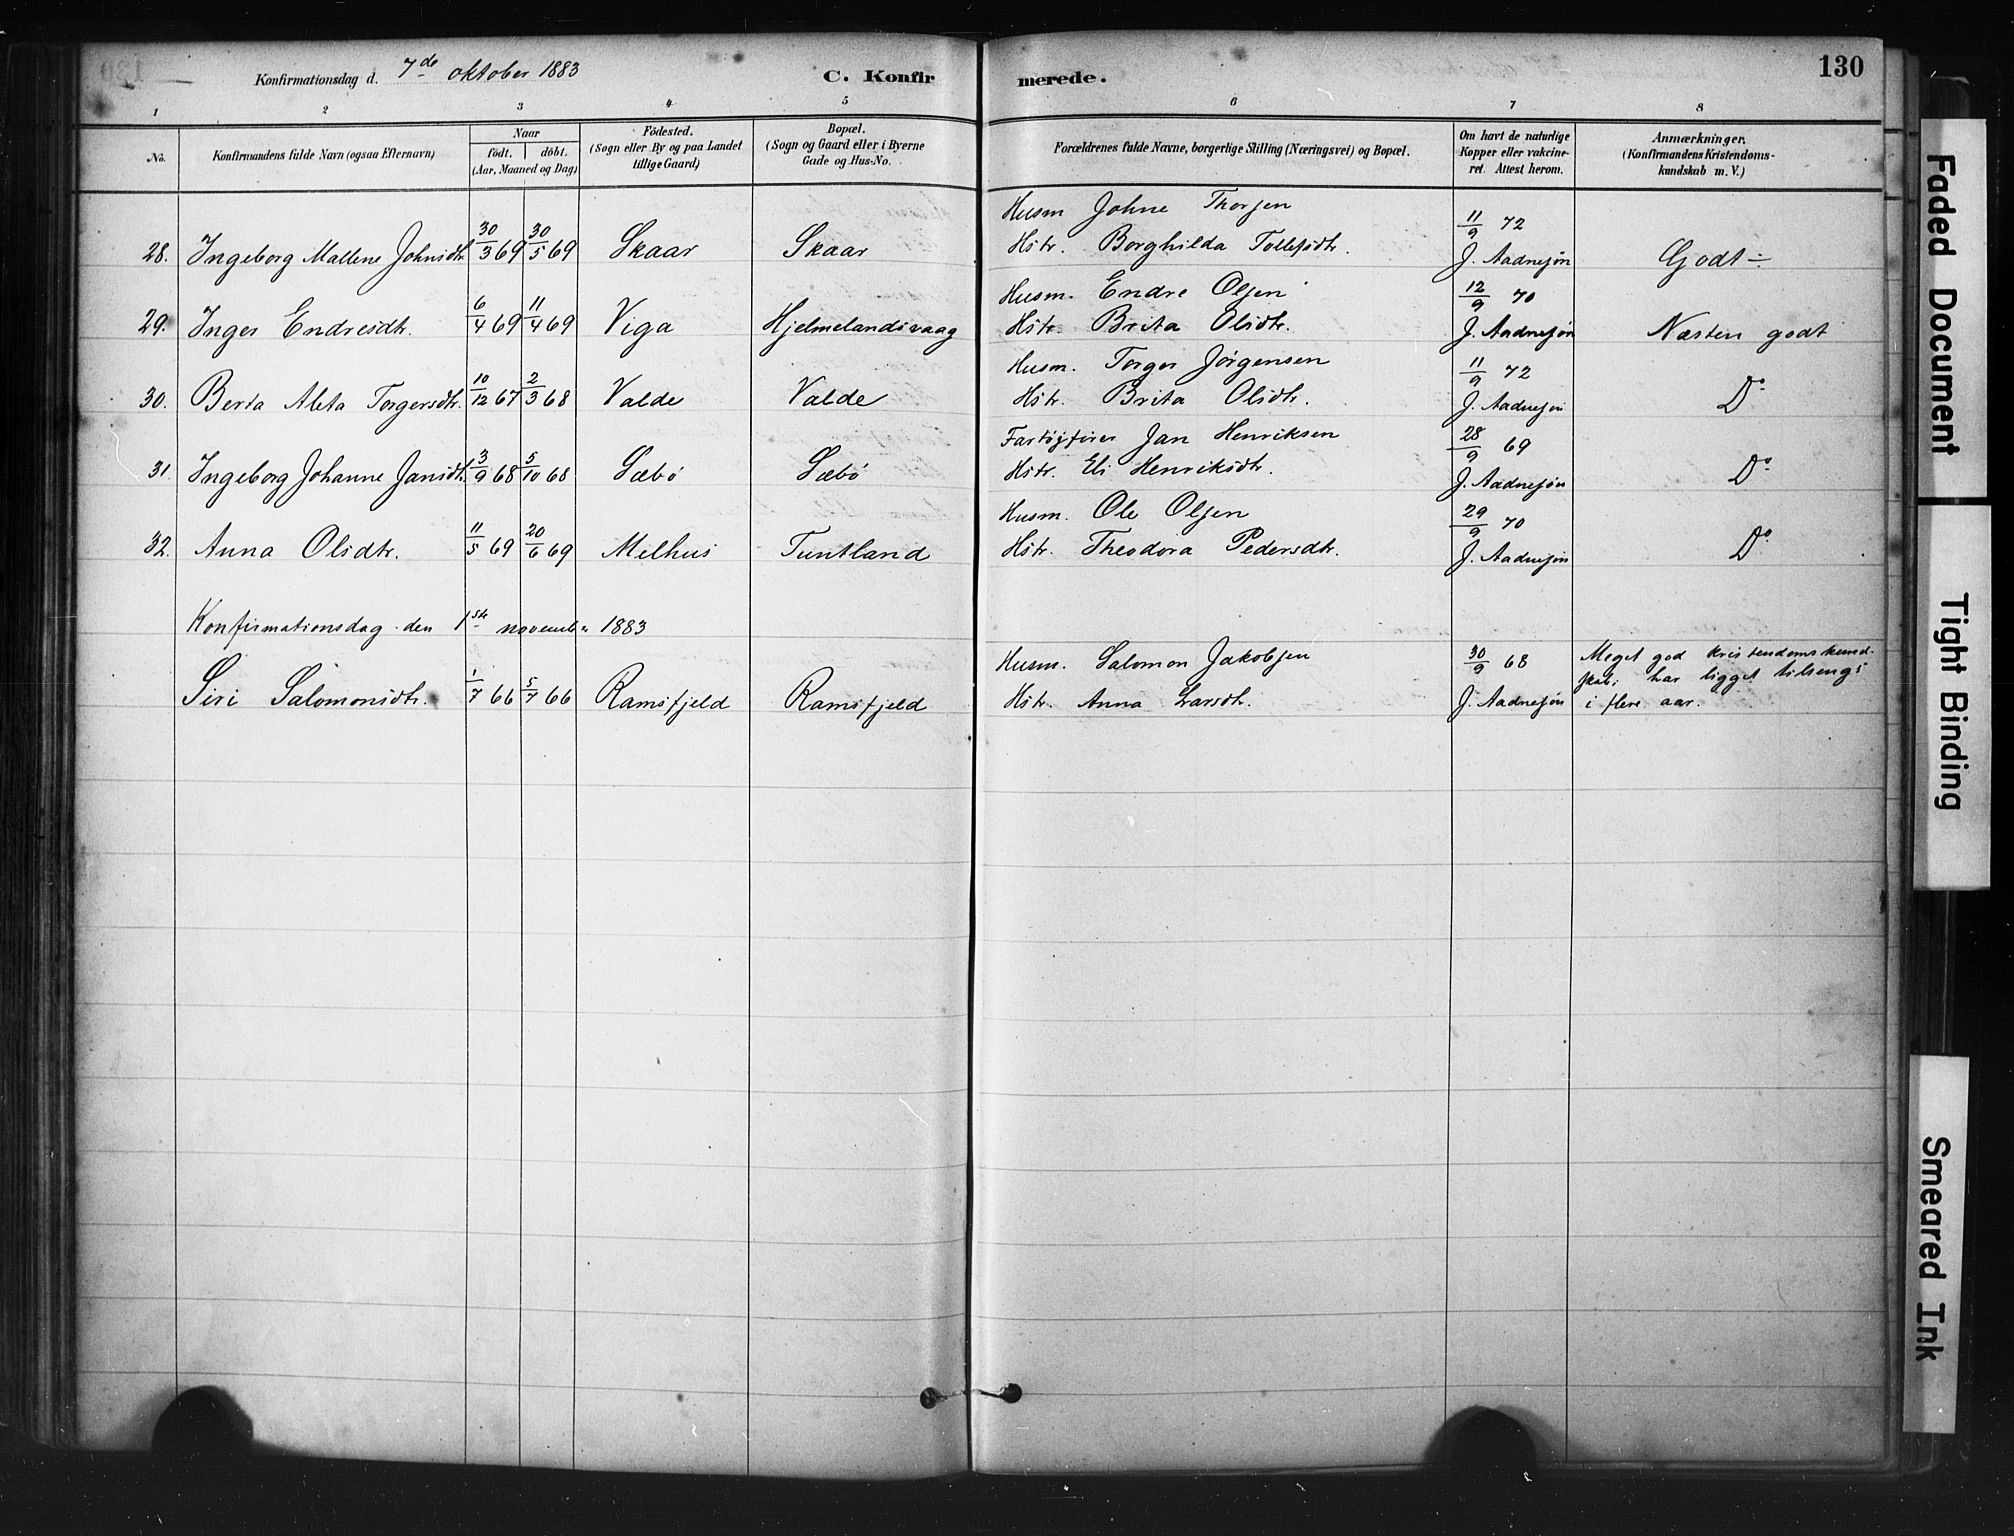 130
Konfirmationsdag d. 7de oktober 1883
C. Konfirmerede.
1 2 3 4 5 6 7 8
No.
Konfirmandens fulde Navn (ogsaa Efternavn)
Naar
födt. | döbt.
(Aar, Maaned og Dag)
Födested.
(Sogn eller By og paa Landet
tillige Gaard)
Bopæl.
(Sogn og Gaard eller i Byerne
Gade og Hus-No.
Forældrenes fulde Navne, borgerlige Stilling (Næringsvei) og Bopæl.
Om havt de naturlige
Kopper eller vakcine-
ret. Attest herom.
Anmærkninger.
(Konfirmandens Kristendoms-
kundskab m. V.)
28. Ingeborg Mallene Johnsdtr. 30/3 69 30/5 69 Skaar Skaar
Husm Johne Thorsen
Hstr. Borghilda Tollefsdtr.
11/9 72
J. Aadnesøn
Godt ÷
29. Inger Endresdtr. 6/4 69 11/4 69 Viga Hjelmelandsvaag
Husm. Endre Olsen
Hstr. Brita Olsdtr.
12/9 70
J. Aadnesøn
Næsten godt
30. Berta Aleta Torgersdtr. 10/12 67 2/3 68 Valde Valde
Husm. Torger Jörgensen
Hstr. Brita Olsdtr.
11/9 72
J. Aadnesøn
Do
31. Ingeborg Johanne Jansdtr. 3/9 68 5/10 68 Sæbö Sæbö
Fartøjfører Jan Henriksen
Hstr. Eli Henriksdtr.
28/9 69
J. Aadnesøn
Do
32. Anna Olsdtr. 11/5 69 20/6 69 Melhus Tuntland
Husm. Ole Olsen
Hstr. Theodora Pedersdtr.
29/9 70
J. Aadnesøn
Do
Konfirmationsdag den 1ste november 1883
Siri Salomonsdtr. 1/7 66 5/7 66 Ramsfjeld Ramsfjeld
Husm. Salomon Jakobsen
Hstr. Anna Larsdtr.
30/9 68
J. Aadnesøn
Meget god kristendomskund-
skab; har ligget tilsengs
i flere aar.
Faded Document
Tight Binding
Smeared Ink